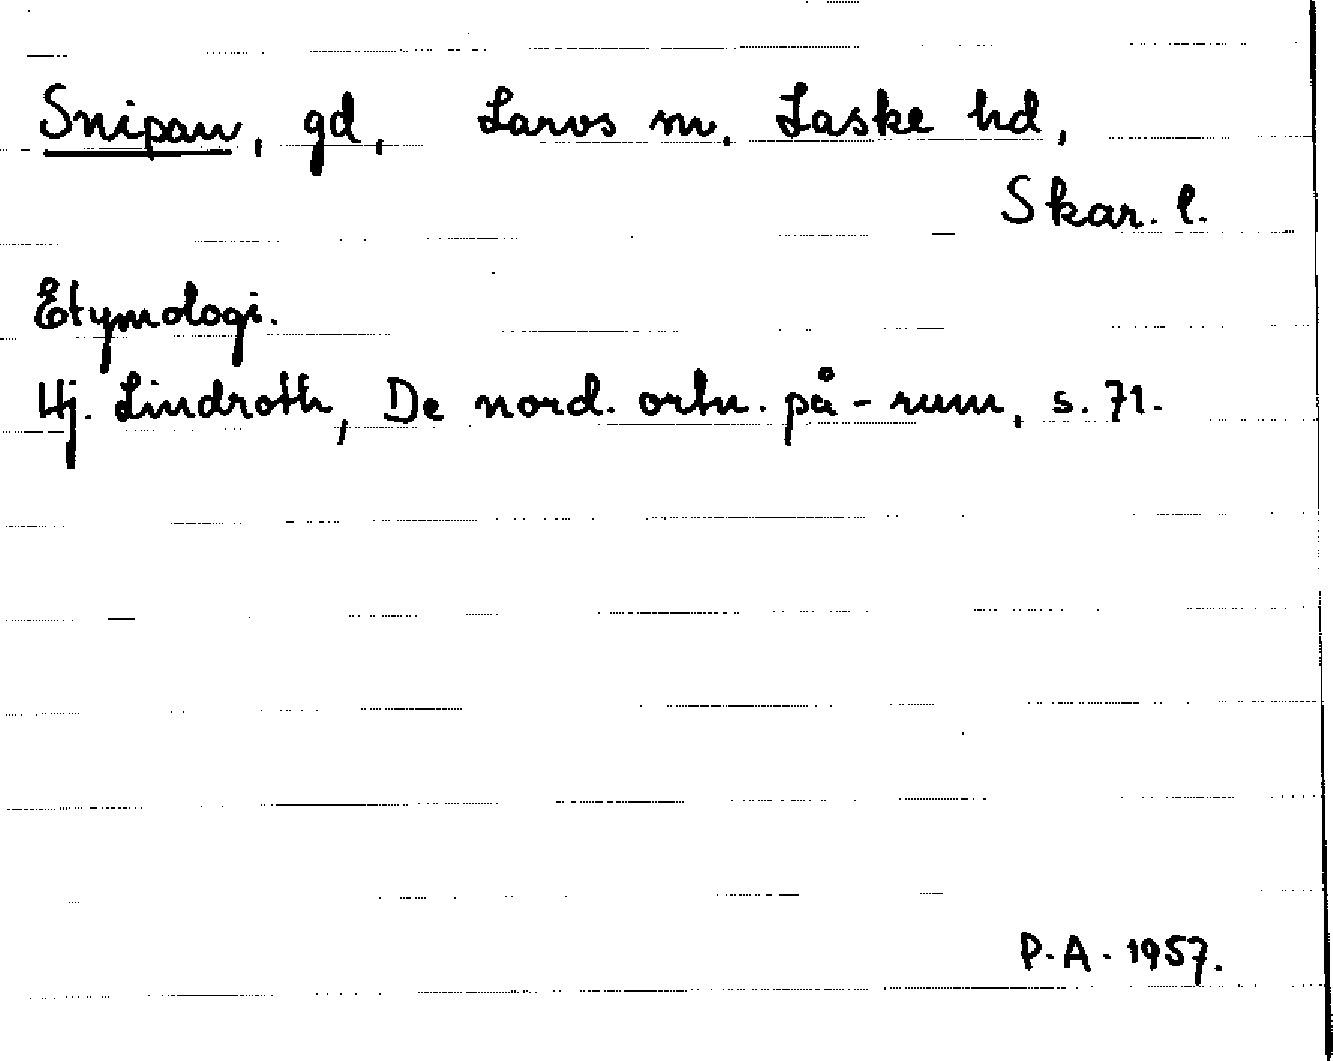 Snipan, gd, Larvs sn. Laske hd,
Skar. l.
Etymologi.
Hj. Lindroth, De nord. ortn. på -rum, s. 71.
P. A. 1957.